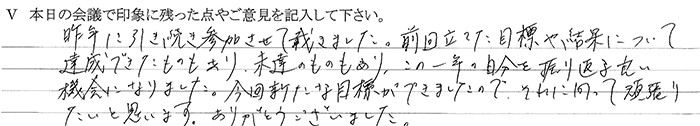 V 本日の会議で印象に残った点やご意見を記入して下さい。
昨年に引き続き参加させて戴きました。前回立てた目標や結果について
達成できたものも有り、未達のものもあり、この一年の自分を振り返る良い
機会になりました。今回新たな目標ができましたので、それに向って頑張り
たいと思います。ありがとうございました。